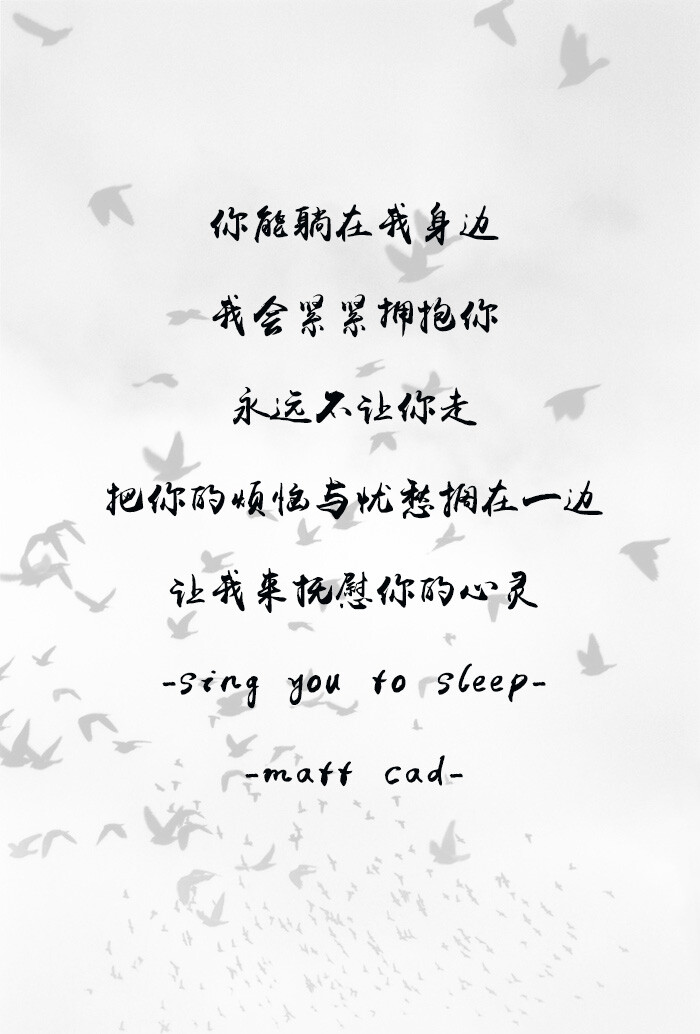 你能躺在我身边
我会紧紧拥抱你
永远不让你走
把你的烦恼与忧愁搁在一边
让我来抚慰你的心灵
-sing you to sleep-
-matt cad-